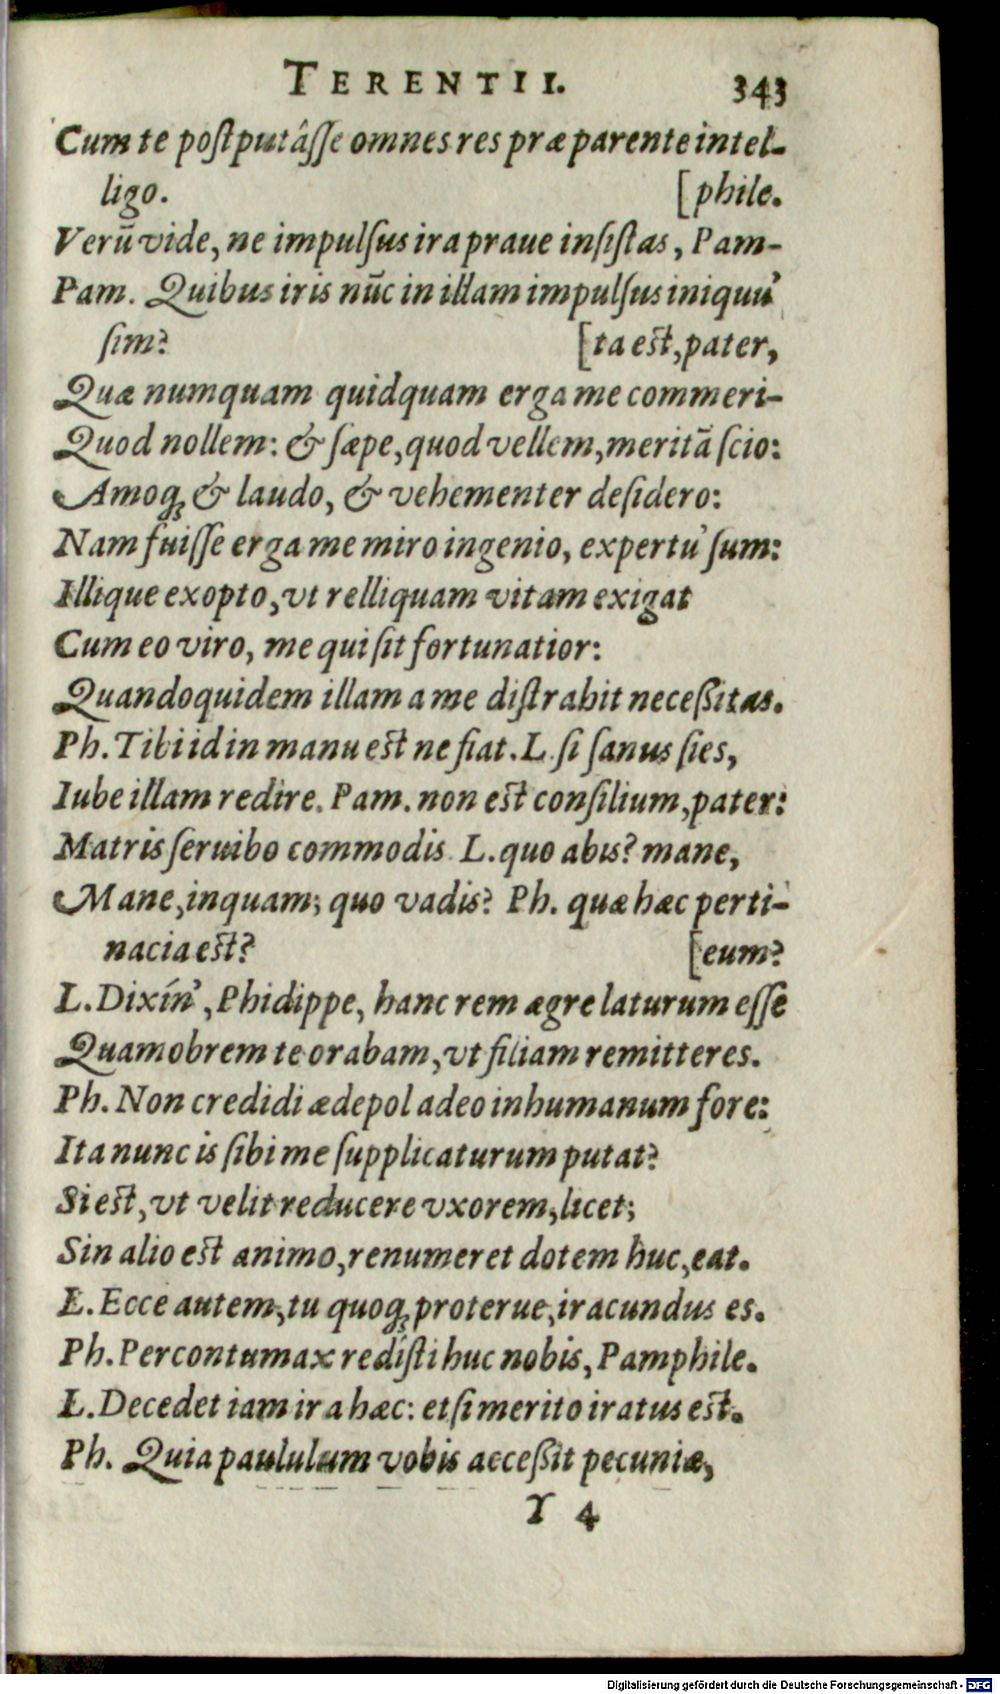 TERENTII. 343
Cum te poſtputâſſe omnes res præ parente intel-
ligo. [phile.
Verū vide, ne impulſus ira praue inſiſtas, Pam-
Pam. Quibus iris nūc in illam impulſus iniquu᾽
ſim? [ta est, pater,
Quæ numquam quidquam erga me commeri-
Quod nollem: & ſæpe, quod vellem, meritā ſcio:
Amoq; & laudo, & vehementer deſidero:
Nam fuiſſe erga me miro ingenio, expertu᾽ ſum:
Illique exopto, vt relliquam vitam exigat
Cum eo viro, me qui ſit fortunatior:
Quandoquidem illam a me diſtrahit neceßitas.
Ph. Tibi id in manu est ne fiat. L. ſi ſanus ſies,
Iube illam redire. Pam. non est conſilium, pater:
Matris ſeruibo commodis. L. quo abis? mane,
Mane, inquam; quo vadis? Ph. quæ hæc perti-
nacia est? [eum?
L. Dixín᾽, Phidippe, hanc rem ægre laturum eſſe
Quamobrem te orabam, vt filiam remitteres.
Ph. Non credidi ædepol adeo inhumanum fore:
Ita nunc is ſibi me ſupplicaturum putat?
Si est, vt velit reducere vxorem, licet;
Sin alio est animo, renumeret dotem huc, eat.
L. Ecce autem, tu quoq; proterue, iracundus es.
Ph. Percontumax redíſti huc nobis, Pamphile.
L. Decedet iam ira hæc: etſi merito iratus est.
Ph. Quia paululum vobis acceßit pecuniæ,
Y 4
Digitalisierung gefördert durch die Deutsche Forschungsgemeinschaft - DFG